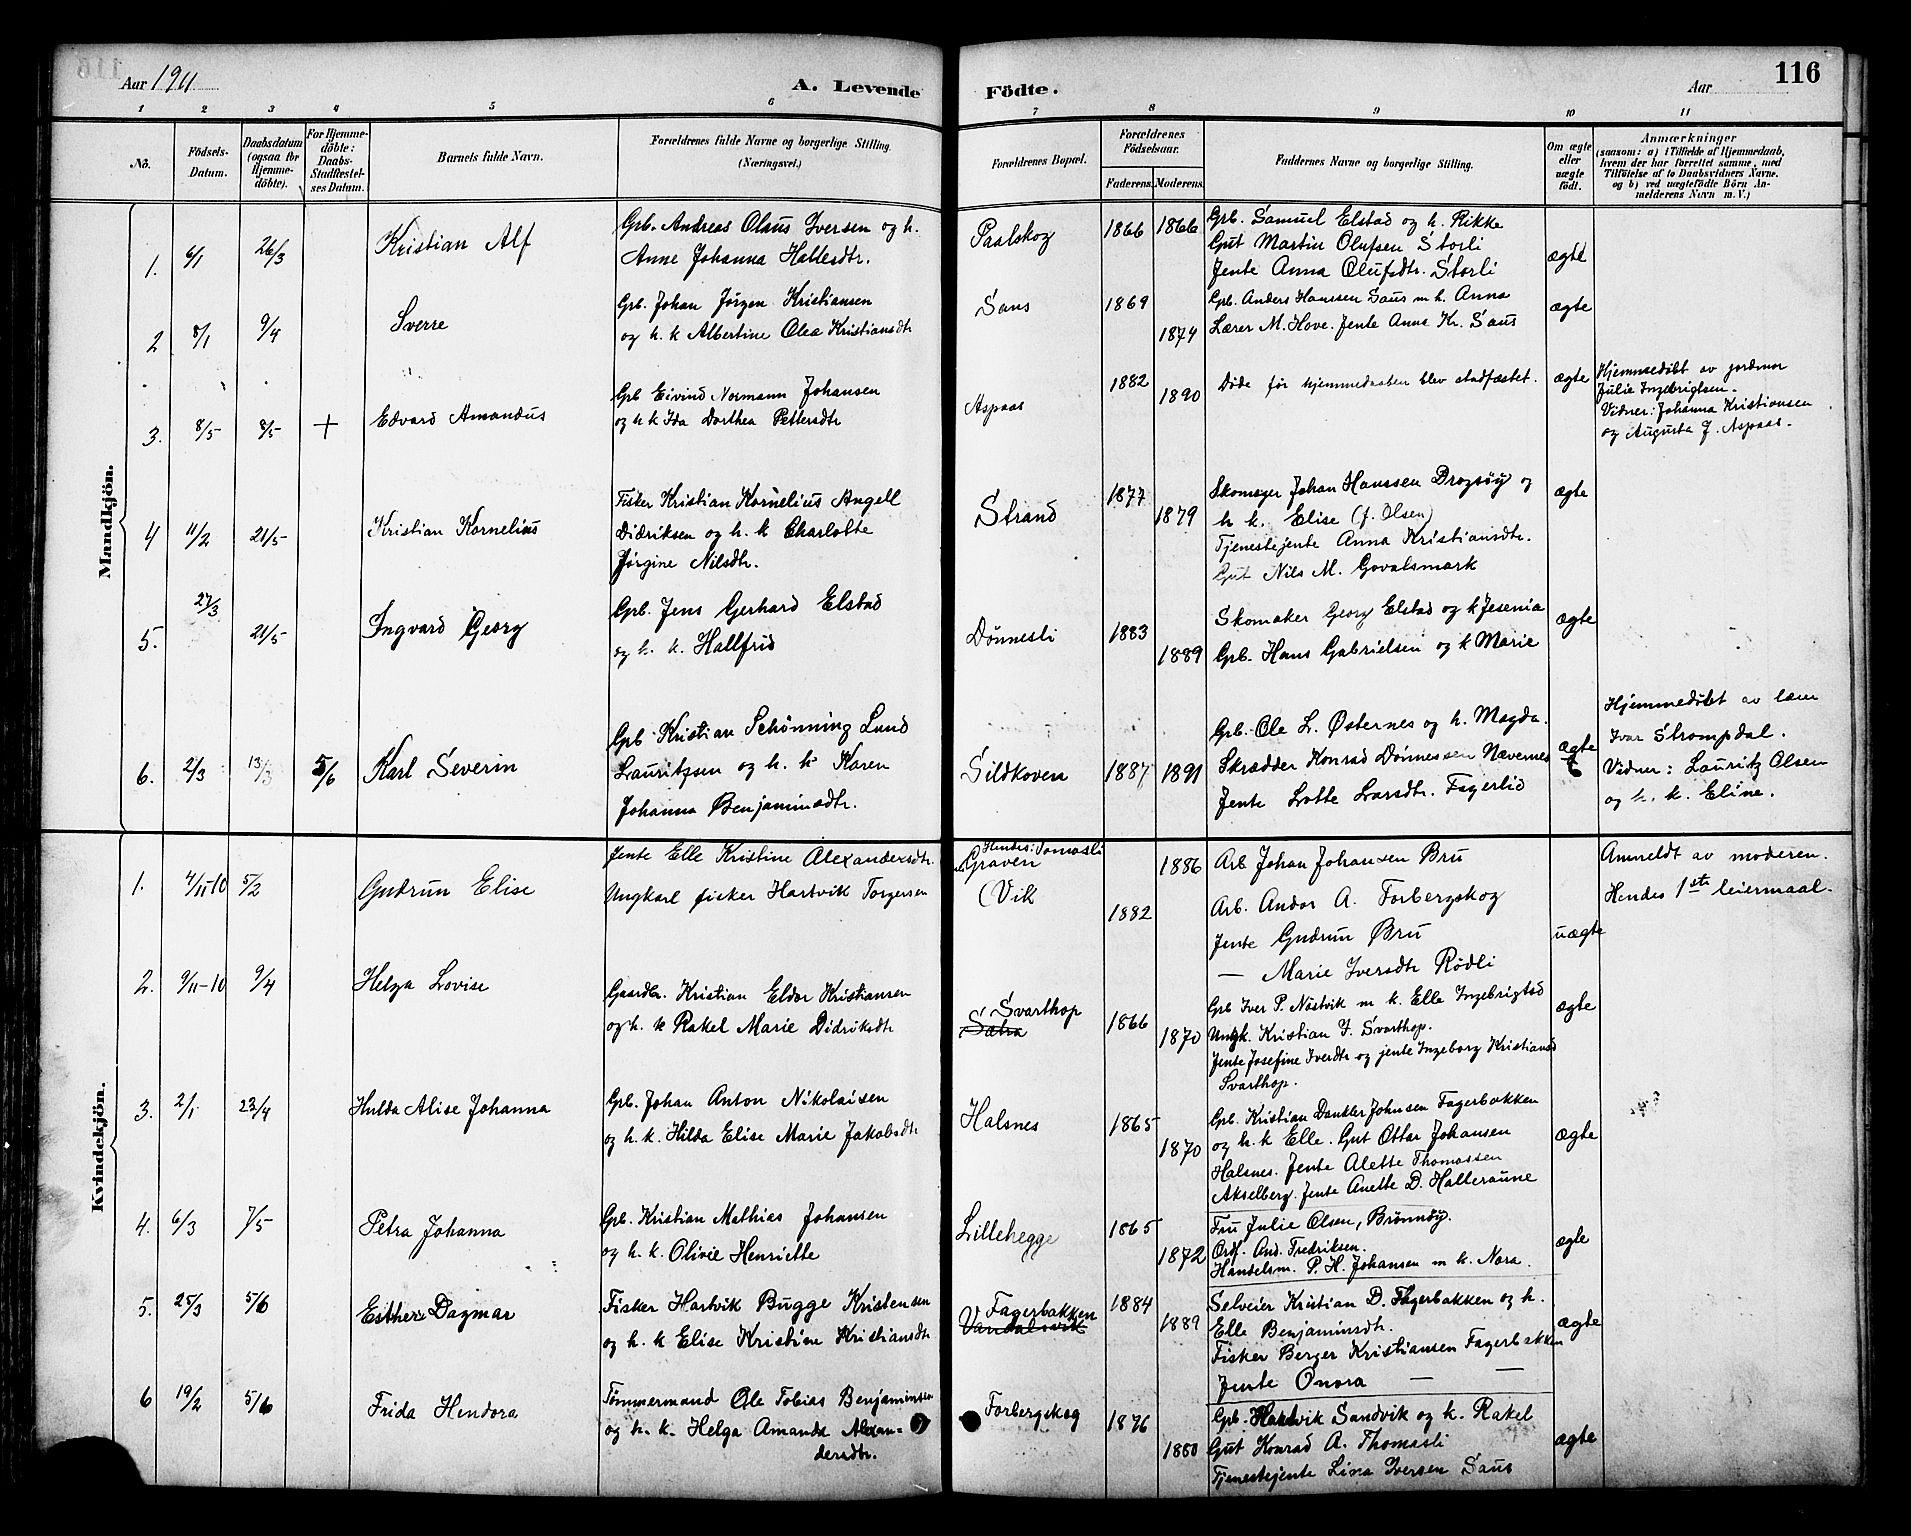 116
Aar 1911
A. Levende
Födte.
Aar
1 2 3 4 5 6 7 8 9 10 11
No.
Födsels-
Datum.
Daabsdatum
(ogsaa for
Hjemme-
döbte).
For Hjemme-
döbte:
Daabs-
Stadfæstel-
ses Datum.
Barnets fulde Navn.
Forældrenes fulde Navne og borgerlige Stilling.
(Næringsvei.)
Forældrenes Bopæl.
Forældrenes
Födselsaar.
Faderens. Moderens.
Faddernes Navne og borgerlige Stilling.
Om ægte
eller
uægte
födt.
Anmærkninger
(saasom: a) i Tilfælde af Hjemmedaab,
hvem der har forrettet samme, med
Tilföielse af to Daabsvidners Navne.
og b) ved uægtefödte Börn An-
melderens Navn m. V.)
Mandkjön.
1. 6/1 26/3 Kristian Alf
Gpb. Andreas Olaus Iversen og h.
Anne Johanna Hallesdtr.
Paalskog 1866 1866
Gpb. Samuel Elstad og h. Rikke
Gut Martin Olufsen Storli
Jente Anna Olufsdtr. Storli
ægte
2 8/1 9/4 Sverre
Gpb. Johan Jørgen Kristiansen
og h. k Albertine Olea Kristiansdtr
Saus 1869 1874
Gpb. Anders Hanssen Saus m h. Anna
Lærer M. Hove. Jente Anna Kr. Saus
ægte
3. 8/5 8/5 + Edvard Amandus
Gpb Eivind Normann Johansen
og h k Ida Dorthea Pettersdtr
Aspaas 1882 1890
Døde før hjemmedaaben blev stadfæstet.
ægte
Hjemmedøbt av jordmor
Julie Ingebrigtsen.
Vidner: Johanna Kristiansen
og Augusta J. Aspaas.
4 11/2 21/5 Kristian Kornelius
Fisker Kristian Kornelius Angell
Didriksen og h. k Charlotte
Jørgine Nilsdtr.
Strand 1877 1879
Skomager Johan Hanssen Dragsøy og
h k. Elise (f. Olsen)
Tjenestejente Anna Kristiansdtr.
Gut Nils M. Govalsmark
ægte
5. 27/3 21/5 Ingvard Georg
Gpb. Jens Gerhard Elstad
og h. k. Hallfrid
Dønnesli 1883 1889
Skomaker Georg Elstad og k Jesenia
Gpb. Hans Gabrielsen og k Marie
ægte
6. 2/3 13/3 5/6 Karl Severin
Gpb Kristian Schønning Lund
Lauritzsen og h. k Karen
Johanna Benjaminsdtr.
Sildkoven 1887 1891
Gpb. Ole L. Østernes og h. Magda.
Skrædder Konrad Dønnessen Nævernes
Jente Lotte Larsdtr. Fagerlid
ægte
Hjemmedøbt av læm
Ivar Strompdal.
Vidner: Lauritz Olsen
og h. k. Eline.
Kvindekjön.
1. 4/11-10 5/2 Gudrun Elise
Jente Elle Kristine Alexandersdtr.
Ungkarl fisker Hartvik Torgersen
Hendes: Tomasli
Graven
(Vik
1882 1886
Arb Johan Johansen Bru
Arb. Andor A. Forbergskog
Jente Gudrun Bru
— Marie Iversdtr Rødli
uægte
Anmeldt av moderen.
Hendes 1ste leiermaal.
2. 9/11-10 9/4 Helga Lovise
Gaardbr. Kristian Eldor Kristiansen
og h. k Rakel Marie Didriksdtr
Svarthop
Sætra
1866 1870
Gpb Iver P. Nästvik m k. Elle Ingebrigtsd
Ungk. Kristian I. Svarthop.
Jente Josefine Iverdtr og jente Ingeborg Kristiansd
Svarthop.
ægte
3. 2/1 23/4 Hulda Alise Johanna
Gpb. Johan Anton Nikolaisen
og h. k. Hilda Elise Marie Jakobsdtr
Halsnes 1865 1870
Gpb. Kristian Dankler Johnsen Fagerbakken
og h. k Elle. Gut Ottar Johansen
Halsnes. Jente Alette Thomassen
Akselberg. Jente Anette D. Halleraune
ægte
4. 6/3 7/5 Petra Johanna
Gpb. Kristian Mathias Johansen
og h. k. Olivie Henriette
Lillehegge 1865 1872
Fru Julie Olsen, Brønnøy.
Ordf. And. Fredriksen.
Handelsm. P. H. Johansen m k. Nora.
ægte
5. 25/3 5/6 Esther Dagmar
Fisker Hartvik Bugge Kristensen
og h. k Elise Kristine Kristiansdtr
Fagerbakken
Vandalsvik
1884 1889
Selveier Kristian D. Fagerbakken og h.
Elle Benjaminsdtr.
Fisker Berger Kristiansen Fagerbakken
Jente Onora —
ægte
6 19/2 5/6 Frida Hendora
Tømmermand Ole Tobias Benjaminsen
og h. k. Helga Amanda Alexan-
dersdtr.
Forbergskog 1876 1880
Gpb. Hartvik Sandvik og k. Rakel
Gut Konrad A. Thomasli
Tjenestejente Lina Iversen Saus
ægte